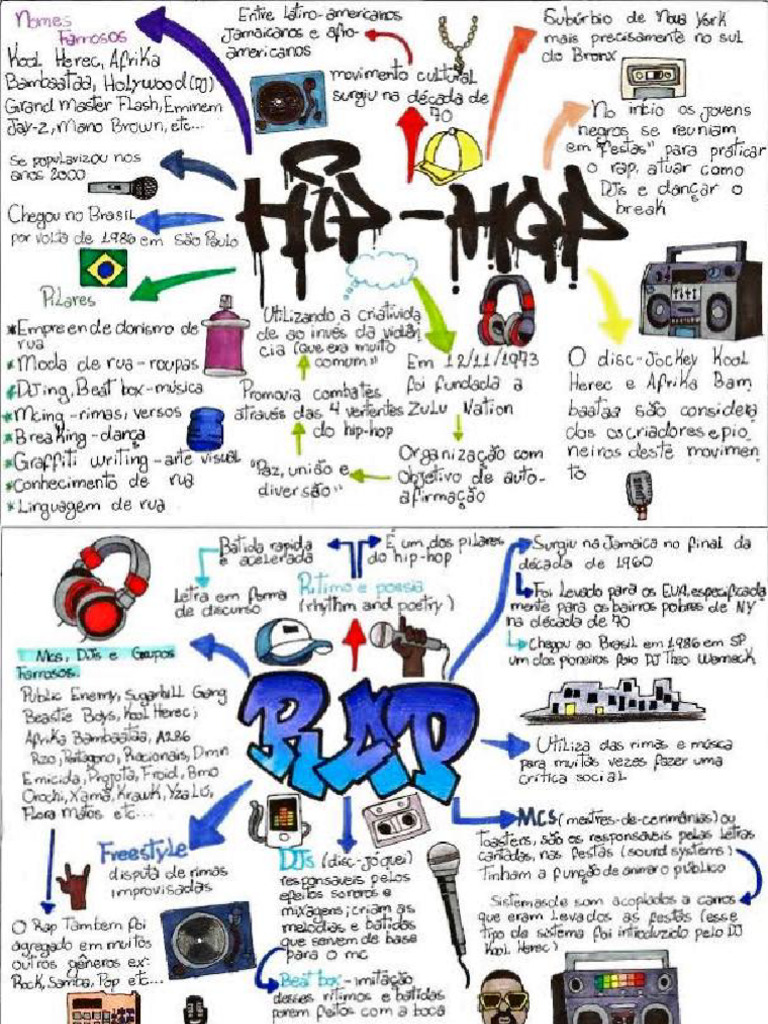 Nomes
Famosos
Kool Herec, Afrika
Bambaataa, Holywood (DJ)
Grand Master Flash, Eminem
Jay-z, Mano Brown, etc...
Entre latino-americanos
Jamaicanos e afro-
americanos
movimento cultural
surgiu na década de
70
Subúrbio de Nova York
mais precisamente no sul
do Bronx
No início os jovens
negros se reuniam
em "festas" para praticar
o rap, atuar como
DJs e dançar o
break
HIP-HOP
se popularizou nos
anos 2000
Chegou no Brasil
por volta de 1986 em São Paulo
Pilares
*Empreendedorismo de
rua
*Moda de rua-roupas
*DJing, Beat box-música
*Mcing-rimas, versos
*Breaking-dança
*Graffiti writing-arte visual
*Conhecimento de rua
*Linguagem de rua
Utilizando a criativida
de ao invés da violên
cia (que era muito
comum)
Promovia combates
através das 4 vertentes
do hip-hop
"Paz, união e
diversão"
Em 12/11/1973
foi fundada a
Zulu Nation
Organização com
objetivo de auto-
afirmação
O disc-Jockey Kool
Herec e Afrika Bam
baataa são considera
dos os criadores e pio
neiros deste movimen
to
Batida rapida
e acelerada
É um dos pilares
do hip-hop
Letra em forma
de discurso
Ritimo e poesia
(rhythm and poetry)
Surgiu na Jamaica no final da
década de 1960
Foi levado para os EUA, especificada
mente para os bairros pobres de NY
na década de 70
Chegou ao Brasil em 1986 em SP
um dos pioneiros foio DJ Theo Werneck
Mcs, DJs e Grupos
Famosos.
Public Enemy, Sugarhill Gang
Beastie Boys, Kool Herec,
Afrika Bambaataa,
Racionais,
Emicida, Projota, Froid,
Orochi, Xamã, Krawk,
Flora Matos etc...
RAP
Utiliza das rimas e música
para muitas vezes fazer uma
crítica social
Freestyle
disputa de rimas
improvisadas
DJs (disc-jóquei)
responsaveis pelos
efeitos sonoros e
mixagens; criam as
melodias e batidas
que servem de base
para o mc
Beat box-imitação
desses ritimos e batidas
porem feitos com a boca
Mcs (mestres-de-cerimônias) ou
Toasters, são os responsaveis pelas letras
cantadas, nas festas (sound systems)
Tinham a função de animar o público
Sistemas de som acoplados a carros
que eram levados as festas (esse
tipo de sistema foi introduzido pelo DJ
Kool Herec)
O Rap Tambem foi
agregado em muitos
outros gêneros ex:
Rock, Samba, Pop etc...